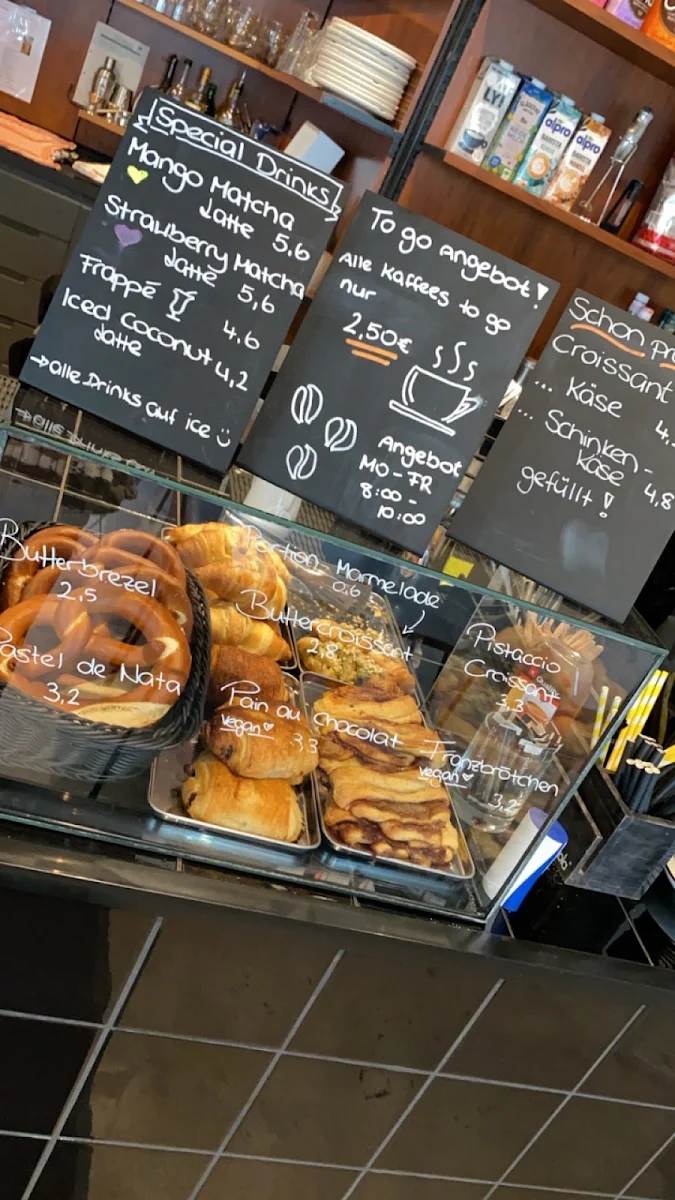 Special Drinks
Mango Matcha
Latte 5,6
Strawberry Matcha
Latte 5,6
Frappé 4,6
Iced Coconut 4,2
Latte
→alle Drinks auf ice
To go Angebot!
Alle Kaffees to go
nur
2,50€
Angebot
MO-FR
8:00-
10:00
Schon
Croissant
... Käse
... Schinken-
Käse 4,8
gefüllt!
alpro
alpro
Butterbrezel
2,5
Pastel de Nata
3,2
Portion Marmelade
0,6
Buttercroissant
2,8
Pain au Chocolat
vegan 3,3
Pistaccio
Croissant
3,3
Franzbrötchen
vegan 3,2